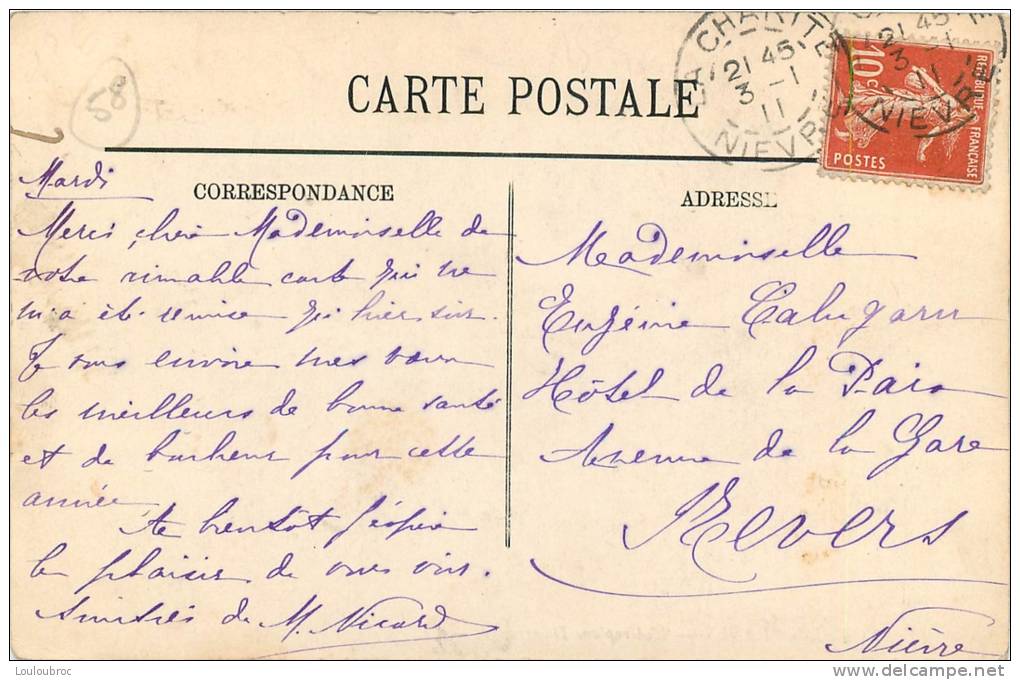 58
CARTE POSTALE
LA CHARITÉ
21 45
3 -1
11
NIEVRE
21 45
3 -1
11
NIEVRE
REPUBLIQUE FRANÇAISE
10c
POSTES
CORRESPONDANCE
Mardi
Merci, chère Mademoiselle de
votre aimable carte qui ne
m'a été remise qu'hier soir.
Je vous envoie mes vœux
les meilleurs de bonne santé
et de bonheur pour cette
année
A bientôt j'espère
le plaisir de vous voir.
Amitiés de M. Nicard
ADRESSE
Mademoiselle
Eugénie
Hôtel de la Paix
Avenue de la Gare
Nevers
Nièvre
Louloubroc
www.delcampe.net